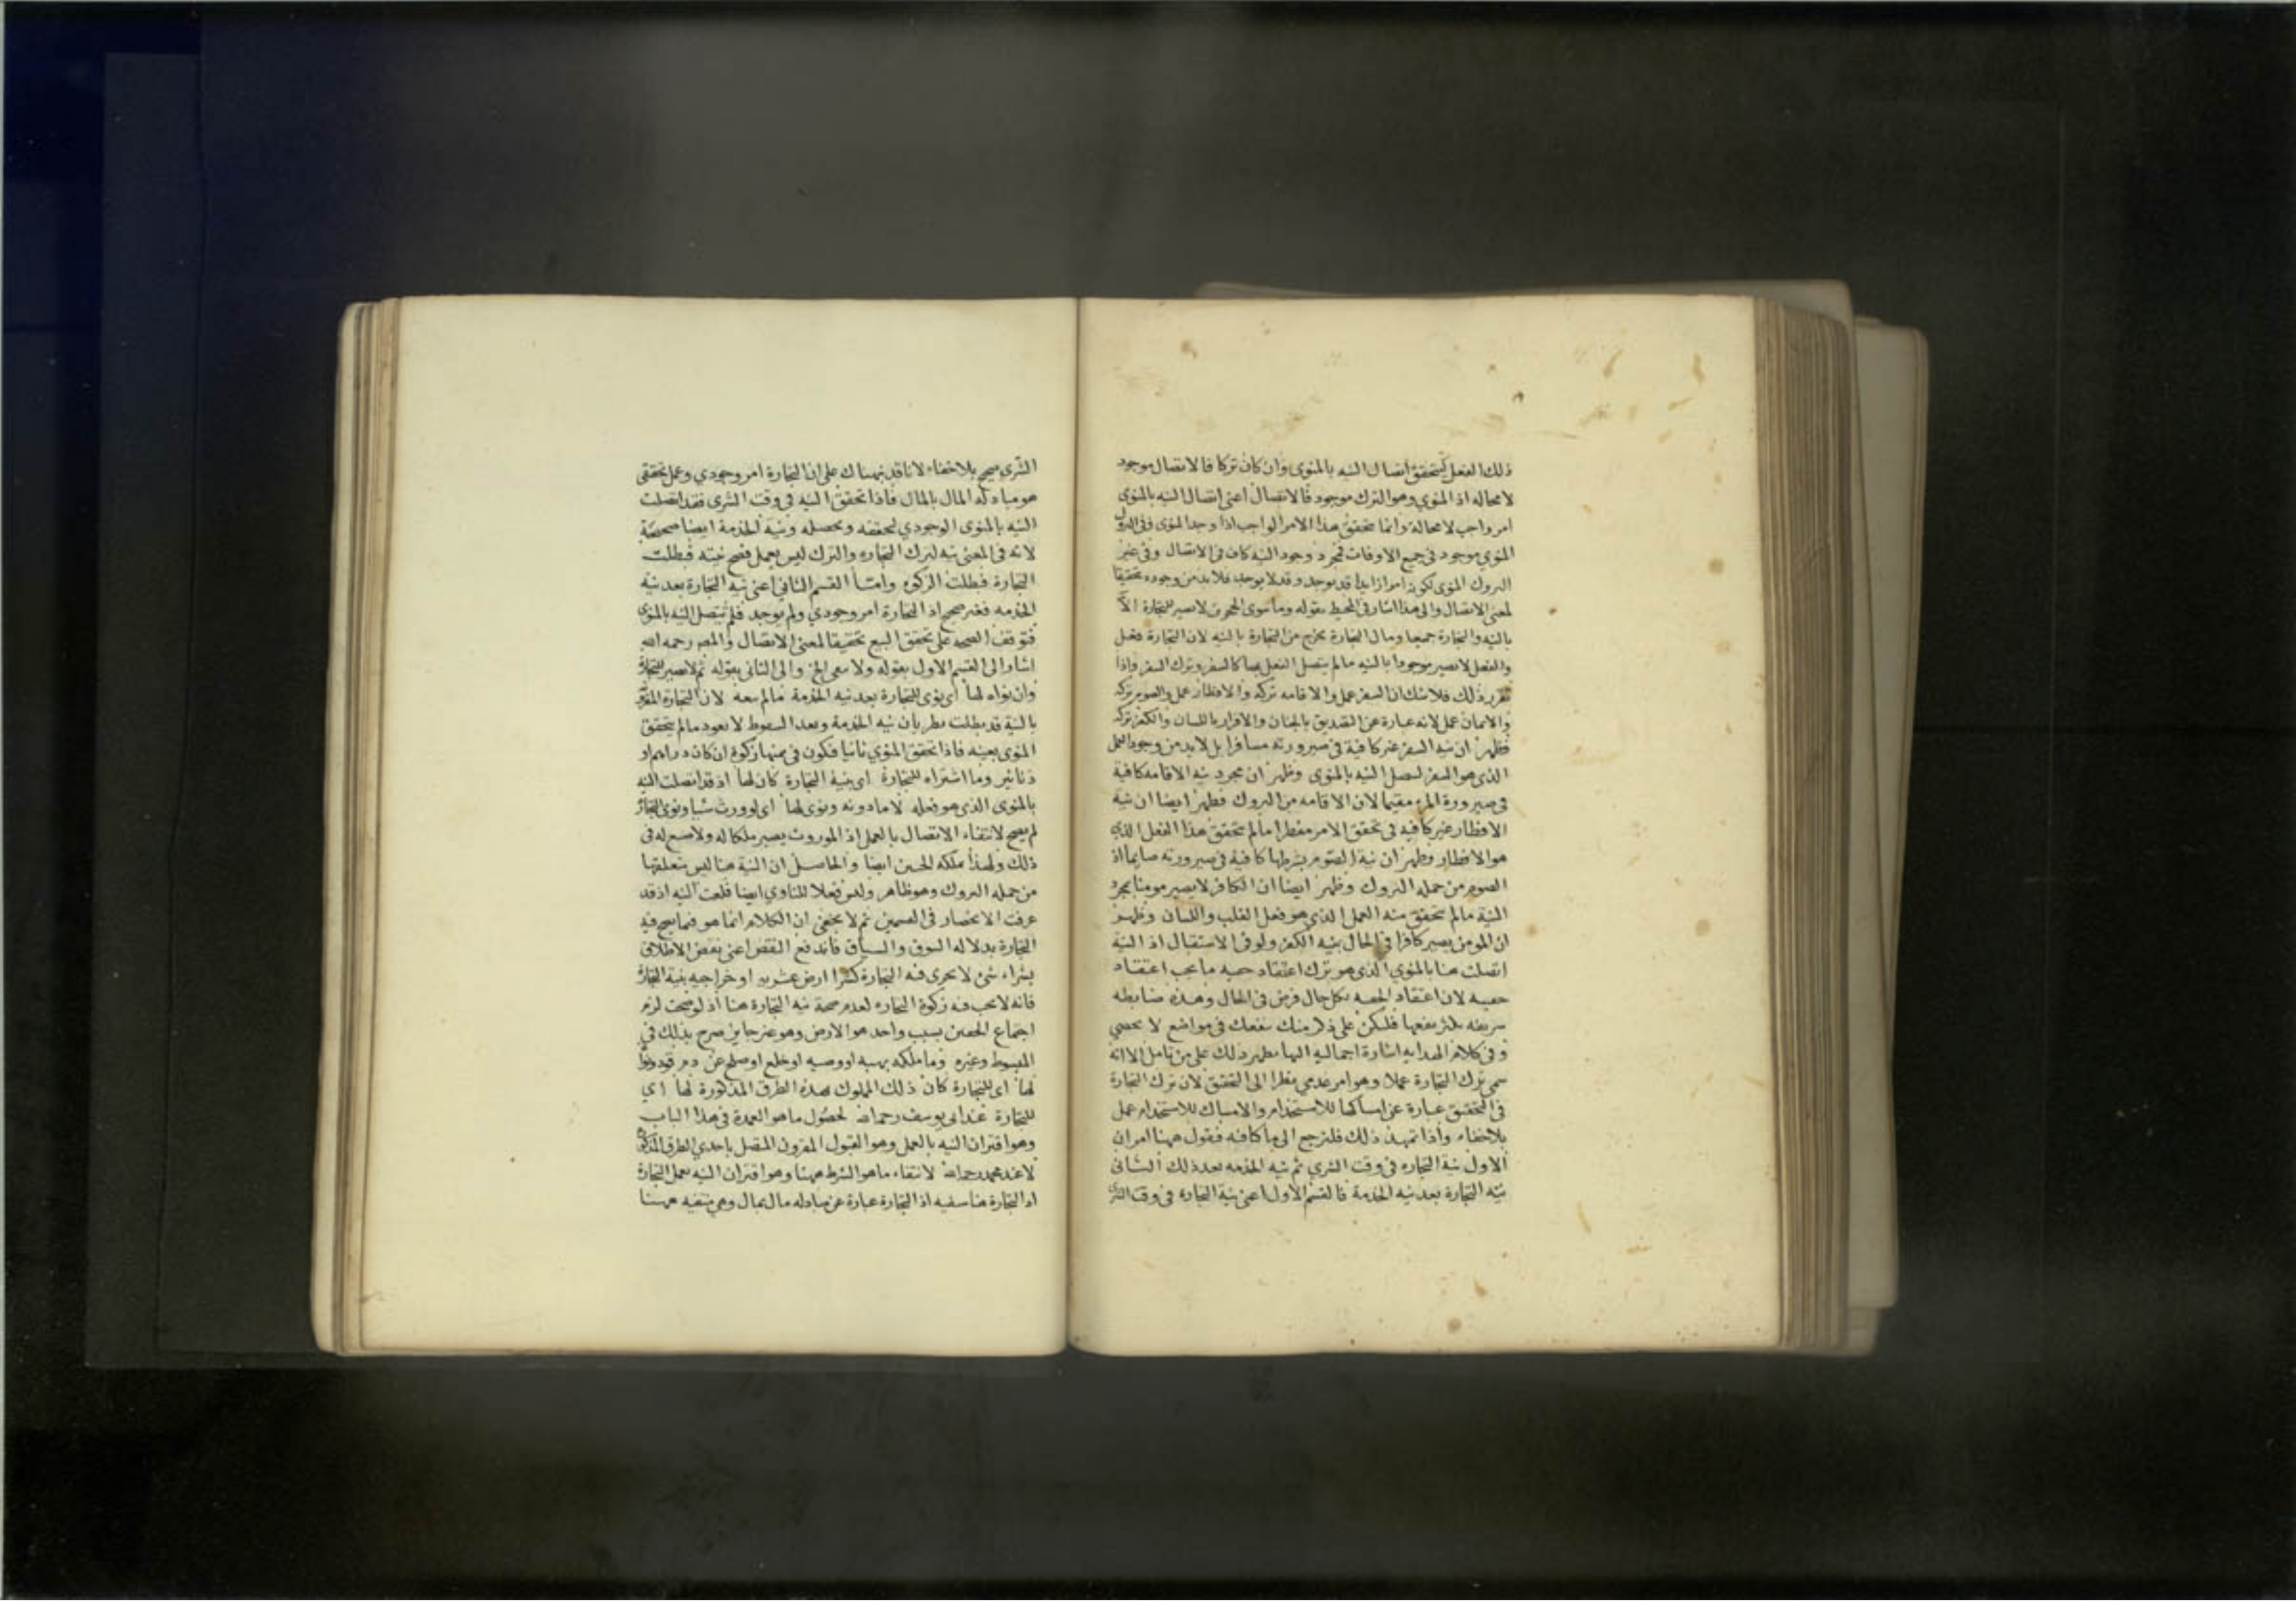 ذلك الفعل ليتحقق اتصال النيه بالمنوى وان كان تركا فالاتصال موجود
لامحاله اذ المنوي وهو الترك موجود فالاتصال اعنى اتصال النيه بالمنوى
امر واجب لامحالة وانما يتحقق هذا الامر الواجب اذا وجد المنوى ففى التروك
المنوي موجود في جميع الاوقات فمجرد وجود النيه كان فى الاتصال وفى غير
التروك المنوى لكونه امرا زايدا قد يوجد وقد لا يوجد فلابد من وجوده تحقيقا
لمعنى الاتصال والى هذا اشار فى المحيط بقوله وما سوى الحجرين لا يصير للتجارة الا
بالنيه والتجارة جميعا ومال التجارة يخرج من التجارة بالنيه لان التجارة فعل
والفعل لا يصير موجودا بالنيه مالم يتصل الفعل بها كالسفر وترك السفر واذا
تقرر ذلك فلا شك ان السفر عمل والاقامه تركه والافطار عمل والصوم تركه
والايمان عمل لانه عبارة عن التصديق بالجنان والاقرار باللسان والكفر تركه
فظهر ان نيه السفر غير كافية فى صيرورته مسافرا بل لابد من وجود العمل
الذى هو السفر ليتصل النيه بالمنوى وظهر ان مجرد نيه الاقامه كافية
فى صيرورة المرء مقيما لان الاقامه من التروك فظهر ايضا ان نية
الافطار غير كافيه فى تحقق الامر مفطرا مالم يتحقق هذا الفعل الذي
هو الافطار وظهر ان نية الصوم بشرطها كافية فى صيرورته صايما اذ
الصوم من جمله التروك وظهر ايضا ان الكافر لا يصير مومنا بمجرد
النية مالم يتحقق منه العمل الذى هو فعل القلب واللسان وظهر
ان المومن يصير كافرا فى الحال بنيه الكفر ولو فى الاستقبال اذ النية
اتصلت هنا بالمنوي الذى هو ترك اعتقاد حقيه ما يجب اعتقاد
حقيه لان اعتقاد الحقيه بكل حال فرض فى الحال وهذه ضابطه
شريفه يكثر نفعها فليكن على ذكر منك ينفعك فى مواضع لا تحصى
وفى كلام الهدايه اشارة اجماليه اليها يظهر ذلك على من تامل الا انه
سمى ترك التجارة عملا وهو امر عدمي نظرا الى التحقق لان ترك التجارة
فى التحقيق عبارة عن امساكها للاستخدام والامساك للاستخدام عمل
بلاخفاء واذا تمهد ذلك فلنرجع الى ما كنا فيه فنقول ههنا امران
الاول نية التجاره فى وقت الشري ثم نيه الخدمه بعد ذلك الثانى
نيه التجارة بعد نيه الخدمة فالقسم الاول اعنى نية التجاره فى وقت الشرى
الشرى صحيح بلاخفاء لانا قد نبهناك على ان التجارة امر وجودي وعمل تحققى
هو مبادله المال بالمال فاذا تحقق النيه فى وقت الشرى فقد اتصلت
النيه بالمنوى الوجودي لتحققه وتحصله ونية الخدمة ايضا صحيحة
لانه فى المعنى نيه لترك التجاره والترك ليس بعمل فصح نيته فبطلت
التجارة فبطلت الزكوه واما القسم الثانى اعنى نيه التجارة بعد نيه
الخدمه فغير صحيح اذ التجارة امر وجودي ولم يوجد فلم يتصل النيه بالمنوى
فتوقف الصحه على تحقق البيع تحقيقا لمعنى الاتصال والمص رحمه الله
اشار الى القسم الاول بقوله ولا معى الخ والى الثانى بقوله ثم لا يصير للتجارة
وان نواه لها اى نوى للتجارة بعد نيه الخدمة مالم يبعه لان التجارة
بالنية قد بطلت بطريان نيه الخدمة وبعد السقوط لا يعود مالم يتحقق
المنوى بعينه فاذا تحقق المنوي ثانيا فتكون فى ثمنها زكوة ان كان دراهم او
دنانير وما اشتراه للتجارة اى بنية التجارة كان لها اذ قد اتصلت النيه
بالمنوى الذى هو فعله لا ما ورثه ونوى لها اى لو ورث شيا ونوى التجارة
لم يصح لانتفاء الاتصال بالعمل اذ الموروث يصير ملكا له ولا صنع له فى
ذلك ولهذا ملكه الجنين ايضا والحاصل ان النية هنا ليس متعلقها
من جمله التروك وهو ظاهر وليس فعلا للناوي ايضا فلغت النيه اذ قد
عرفت الانحصار فى القسمين ثم لا يخفى ان الكلام انما هو فيما يصح فيه
التجارة بدلاله السوق والسياق فاندفع النقض اعنى نقض الاطلاق
بشراء شئ لا يجرى فيه التجارة كشرا ارض عشريه او خراجيه بنية التجارة
فانه لا يجب فيه زكوة التجاره لعدم صحة نيه التجارة هنا اذ لو صحت لزم
اجتماع الحقين بسبب واحد هو الارض وهو غير جايز صرح بذلك فى
المبسوط وغيره وما ملكه بهبه او وصيه او خلع او صلح عن دم قود ونواه
لها اى للتجارة كان ذلك المملوك بهذه الطرق المذكورة لها اي
للتجارة عند ابى يوسف رحمه الله لحصول ما هو العمدة فى هذا الباب
وهو اقتران النيه بالعمل وهو القبول المقرون المتصل باحدي الطرق المذكورة
لا عند محمد رحمه الله لانتفاء ما هو الشرط ههنا وهو اقتران النيه بعمل التجارة
اذ التجارة هنا منتفيه اذ التجارة عبارة عن مبادله مال بمال وهى منتفيه ههنا